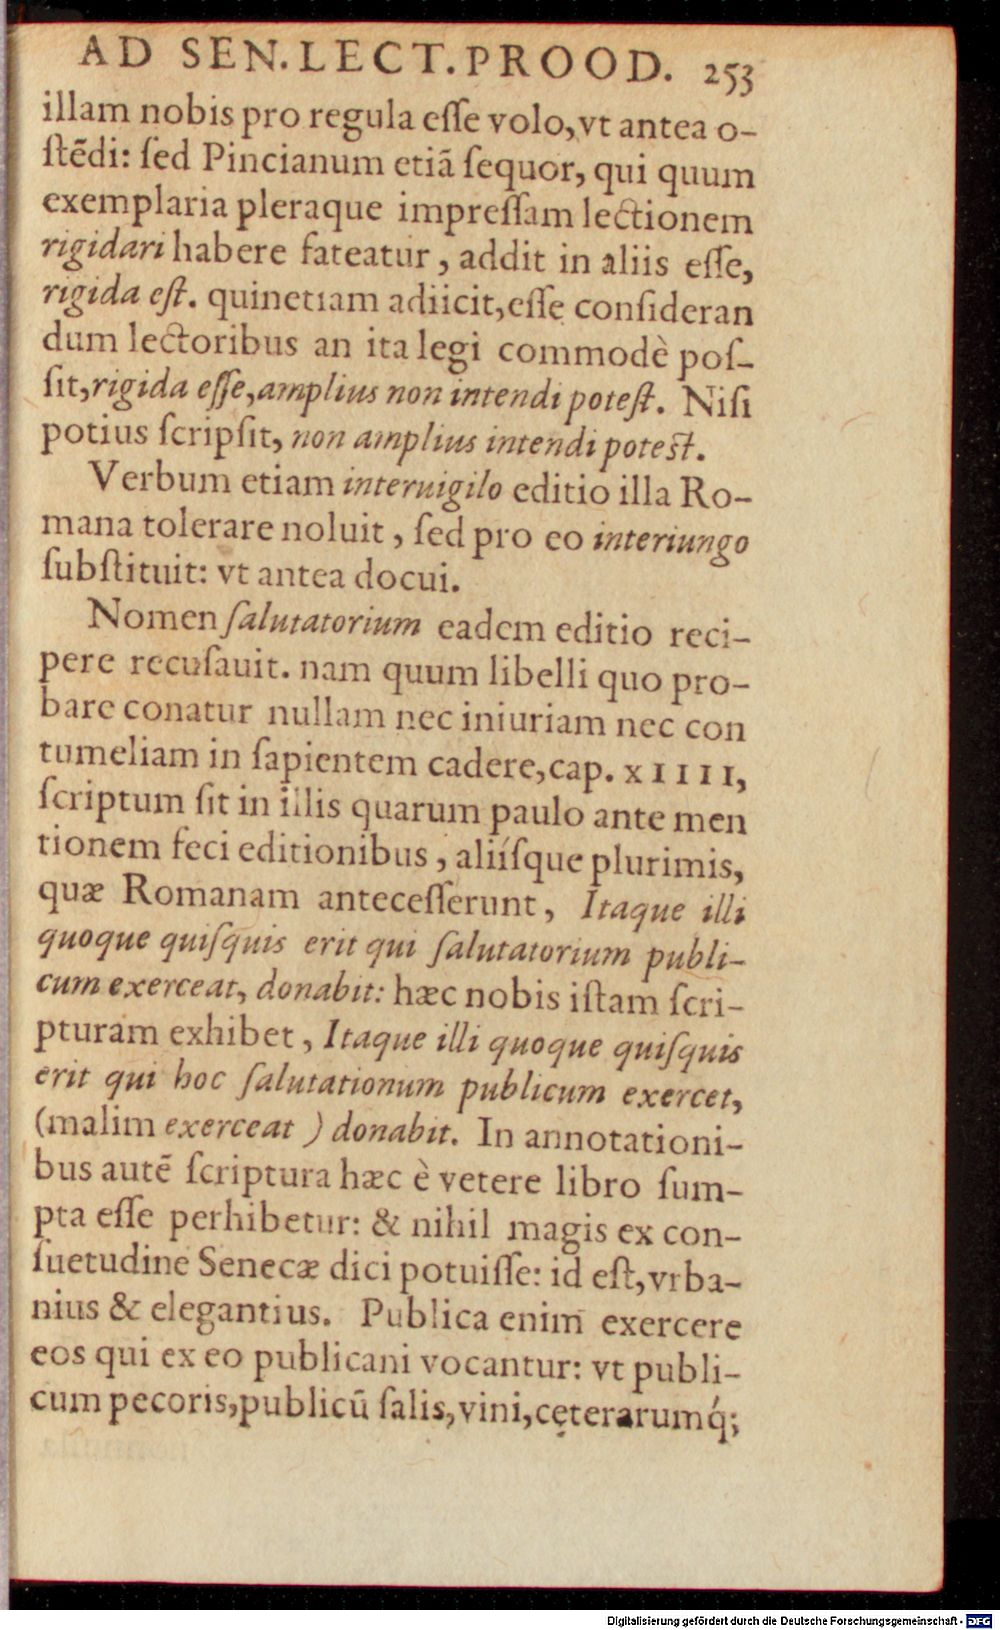 AD SEN. LECT. PROOD. 253
illam nobis pro regula eſſe volo, vt antea o-
ſtēdi: ſed Pincianum etiā ſequor, qui quum
exemplaria pleraque impreſſam lectionem
rigidari habere fateatur, addit in aliis eſſe,
rigida eſt. quinetiam adiicit, eſſe conſideran
dum lectoribus an ita legi commodè poſ-
ſit, rigida eſſe, amplius non intendi poteſt. Niſi
potius ſcripſit, non amplius intendi poteſt.
Verbum etiam interuigilo editio illa Ro-
mana tolerare noluit, ſed pro eo interiungo
ſubſtituit: vt antea docui.
Nomen ſalutatorium eadem editio reci-
pere recuſauit. nam quum libelli quo pro-
bare conatur nullam nec iniuriam nec con
tumeliam in ſapientem cadere, cap. XIIII,
ſcriptum ſit in illis quarum paulo ante men
tionem feci editionibus, aliíſque plurimis,
quæ Romanam anteceſſerunt, Itaque illi
quoque quiſquis erit qui ſalutatorium publi-
cum exerceat, donabit: hæc nobis iſtam ſcri-
pturam exhibet, Itaque illi quoque quiſquis
erit qui hoc ſalutationum publicum exercet,
(malim exerceat) donabit. In annotationi-
bus autē ſcriptura hæc è vetere libro ſum-
pta eſſe perhibetur: & nihil magis ex con-
ſuetudine Senecæ dici potuiſſe: id eſt, vrba-
nius & elegantius. Publica enim exercere
eos qui ex eo publicani vocantur: vt publi-
cum pecoris, publicū ſalis, vini, cęterarumq́;
Digitalisierung gefördert durch die Deutsche Forschungsgemeinschaft - DFG